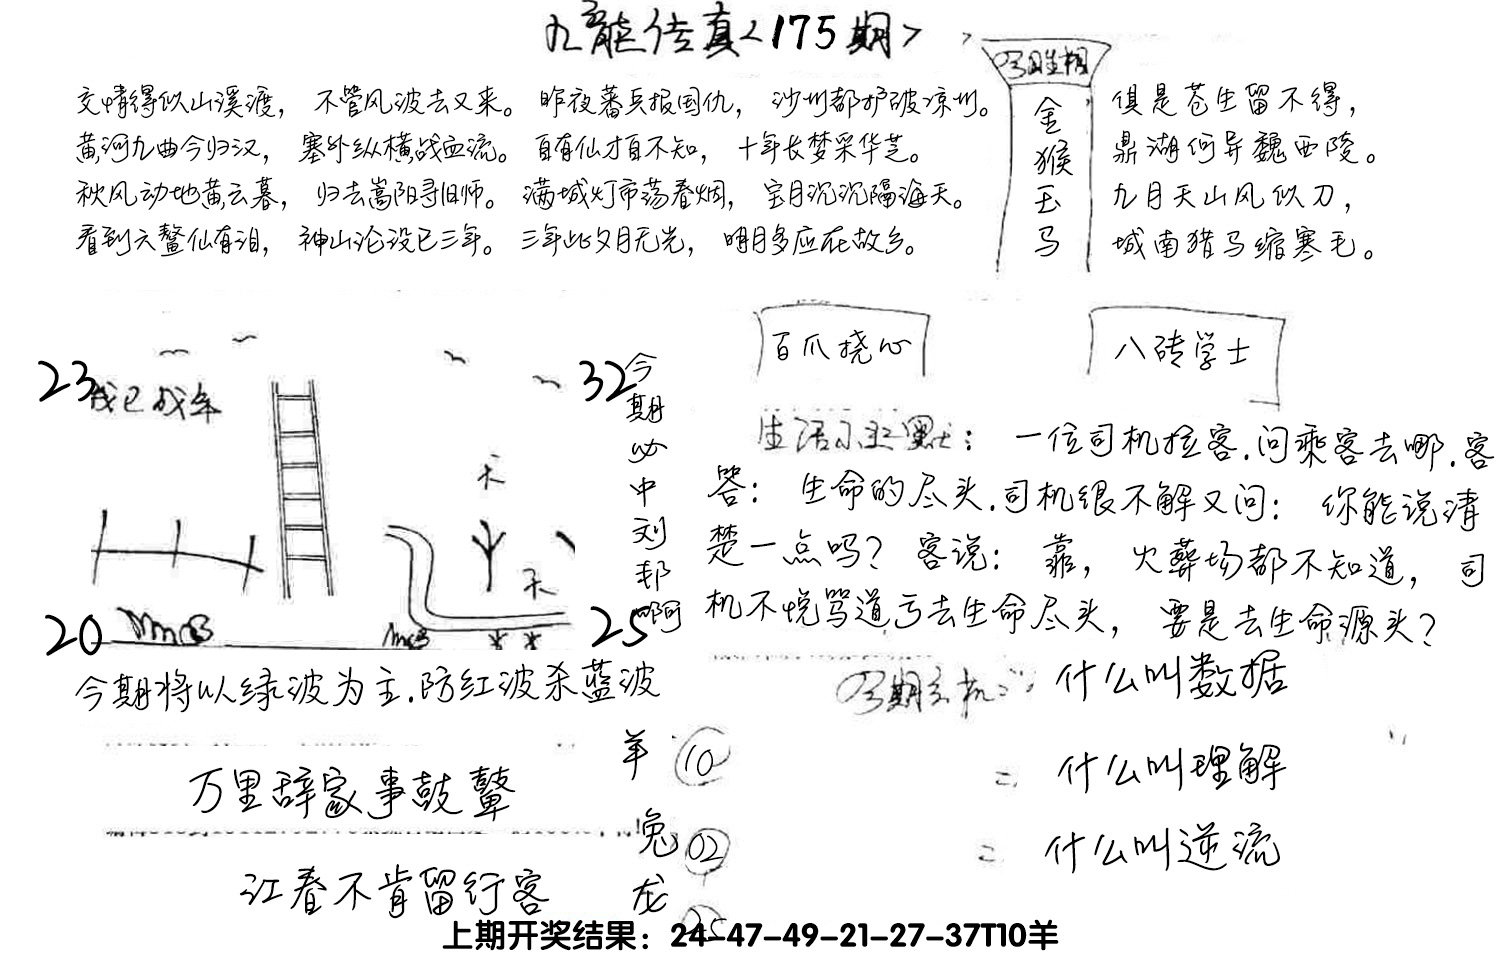 九龙传真<175期>
交情得似山溪渡，不管风波去又来。昨夜蕃兵报国仇，沙州都护破凉州。
黄河九曲今归汉，塞外纵横战血流。自有仙才自不知，十年长梦采华芝。
秋风动地黄云暮，归去嵩阳寻旧师。满城灯市荡春烟，宝月沉沉隔海天。
看到六鳌仙有泪，神山沦没已三年。三年此夕月无光，明月多应在故乡。
今期生相
金猴玉马
俱是苍生留不得，
鼎湖何异魏西陵。
九月天山风似刀，
城南猎马缩寒毛。
23
32
20
25
天
天
今期必中刘邦啊
百爪挠心
八砖学士
生活小幽默：一位司机拉客.问乘客去哪.客
答：生命的尽头.司机很不解又问：你能说清
楚一点吗？客说：靠，火葬场都不知道，司
机不悦骂道亏去生命尽头，要是去生命源头？
今期将以绿波为主.防红波杀蓝波
今期玄机：什么叫数据
= 什么叫理解
= 什么叫逆流
万里辞家事鼓鼙
江春不肯留行客
羊 10
兔 02
龙 25
上期开奖结果：24-47-49-21-27-37T10羊